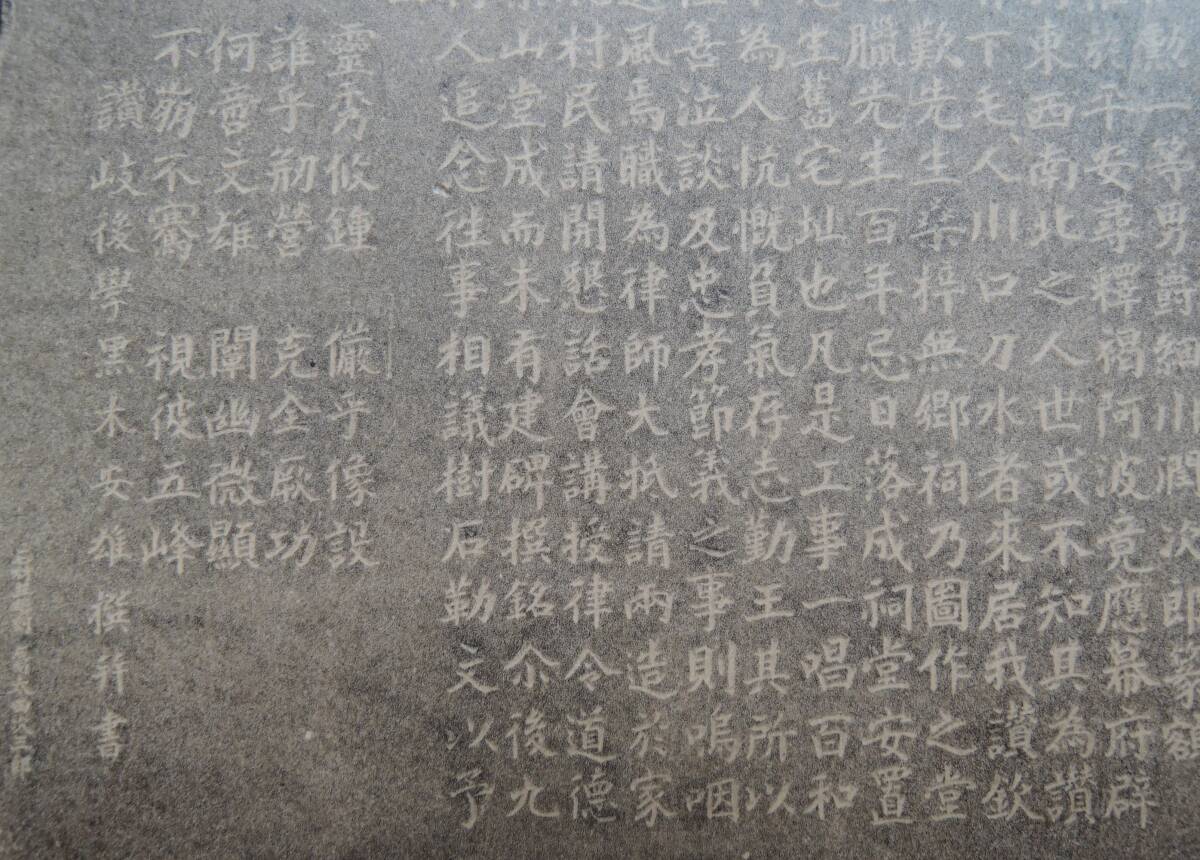 勲一等男爵細川潤次郎篆額
於平安尋釋褐阿波竟應幕府辟
東西南北之人世或不知其為讃
下毛人川口刀水者来居我讃欽
歎先生桒梓無郷祠乃圖作之堂
臘先生百年忌日落成祠堂安置
生舊宅址也凡是工事一唱百和
為人忼慨負氣存志勤王其所以
善泣談及忠孝節義之事則嗚咽
風焉職為律師大抵請兩造於家
村民請開懇話會講授律令道德
山堂成而未有建碑撰銘尒後九
人追念徃事相議樹石勒文以予
靈秀攸鍾 儼乎像設
誰乎剏營 克全厥功
何啻文雄 闡幽微顯
不蒴不騫 視彼五峰
讃岐後學黒木安雄撰并書